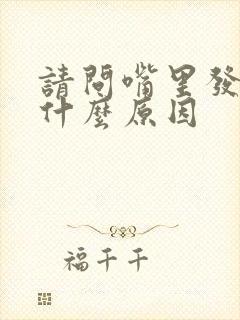 請問嘴里發
什麼原因
福千千